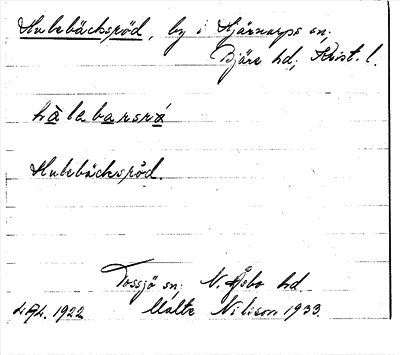 Hulebäcksröd, by i Hjärnarps sn;
Bjäre hd; Krist. l.
hàlabarsrá
Hulebäcksröd.
Tossjö sn; N. Åsbo hd.
1922. Malte Nilsson 1933.